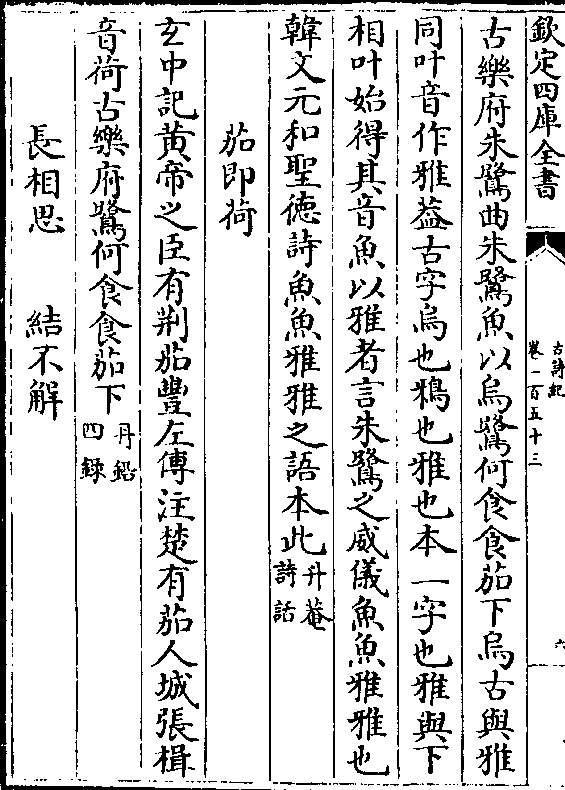 欽定四庫全書
古詩紀
卷一百五十三
六
古樂府朱鷺曲朱鷺魚以烏鷺何食食茄下烏古與雅
同叶音作雅葢古字烏也鴉也雅也本一字也雅與下
相叶始得其音魚以雅者言朱鷺之威儀魚魚雅雅也
韓文元和聖德詩魚魚雅雅之語本此丹菴詩話
茄即荷
玄中記黃帝之臣有荆茄豐左傳注楚有茄人城張楫
音荷古樂府鷺何食食茄下丹鉛四錄
長相思　結不解